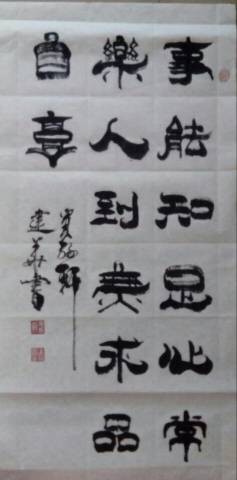 事能知足心常
樂人到無求品
自高
軒
建華書